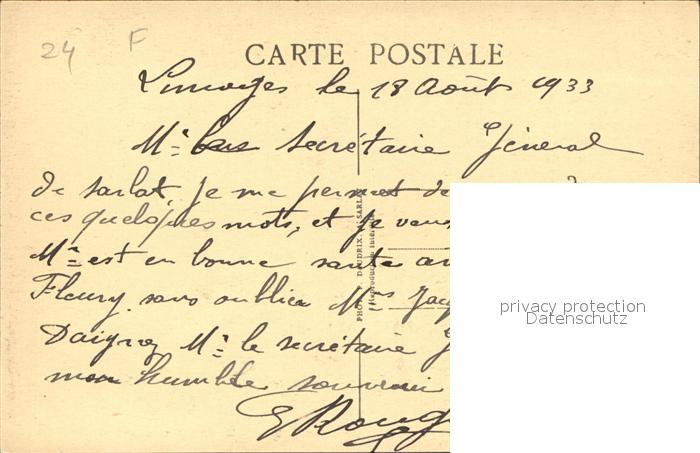 24 F
CARTE POSTALE
Limoges le 18 Août 1933
Mr Secrétaire Général
de Sarlat, je me permet de
ces quelques mots, et je
Mr est en bonne santé
Fleury sans oublier Mrs
Mr le secrétaire
mon humble souvenir
PHOTO. DOUDRIX. SARLAT
privacy protection
Datenschutz